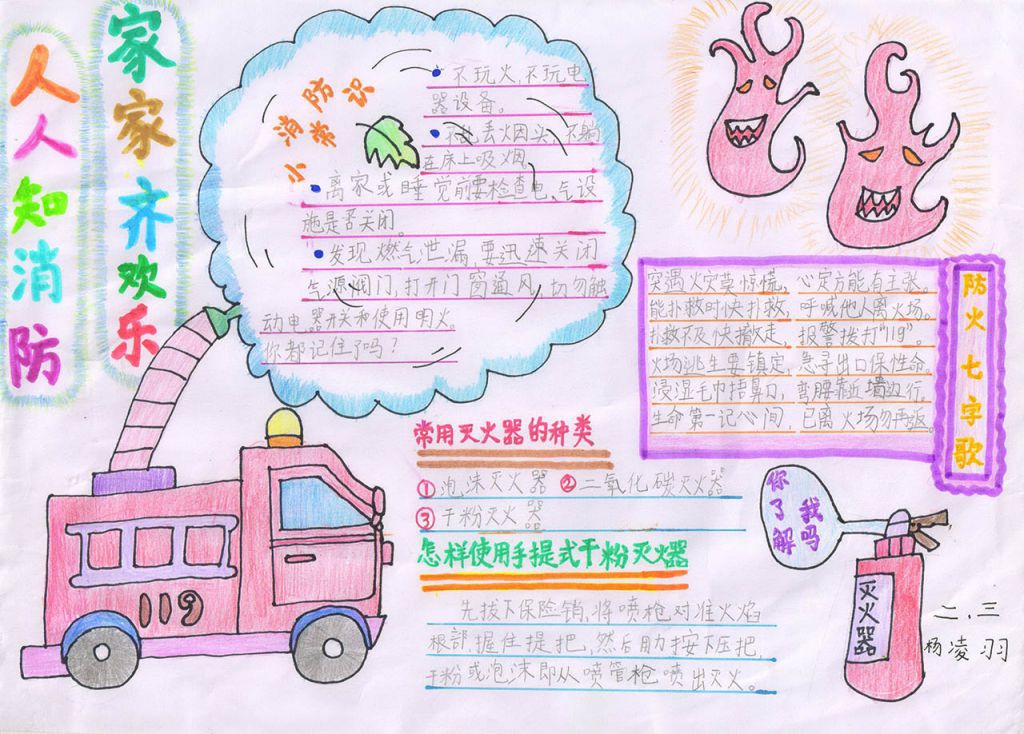 人人知消防
家家齐欢乐
消防小常识
不玩火,不玩电
器设备。
不乱丢烟头,不躺
在床上吸烟
离家或睡觉前要检查电、气设
施是否关闭。
发现燃气泄漏,要迅速关闭
气源阀门,打开门窗通风,切勿触
动电器开关和使用明火。
你都记住了吗?
防火七字歌
突遇火灾莫惊慌,心定方能有主张。
能扑救时快扑救,呼喊他人离火场。
扑救不及快撤走,报警拨打“119”。
火场逃生要镇定,急寻出口保性命。
浸湿毛巾捂鼻口,弯腰靠近墙边行。
生命第一记心间,已离火场勿再返。
常用灭火器的种类
①泡沫灭火器 ②二氧化碳灭火器
③干粉灭火器
怎样使用手提式干粉灭火器
先拔下保险销,将喷枪对准火焰
根部,握住提把,然后用力按下压把,
干粉或泡沫即从喷管枪喷出灭火。
你了解我吗
灭火器
119
二.三
杨凌羽